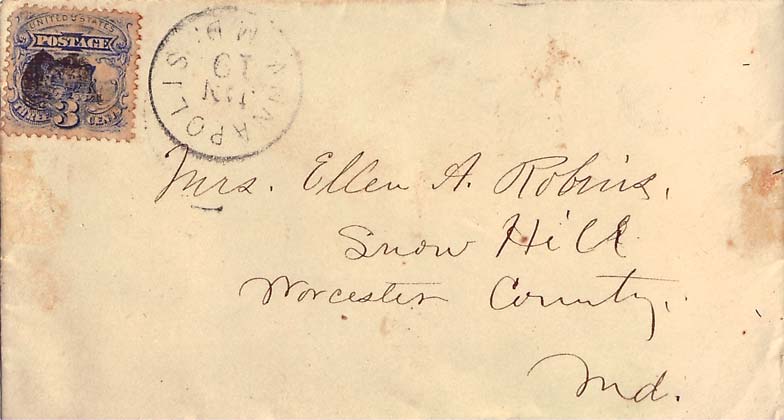 UNITED STATES
POSTAGE
THREE 3 CENTS
ANNAPOLIS MD.
JUN
Mrs. Ellen A. Robins,
Snow Hill
Worcester County,
Md.